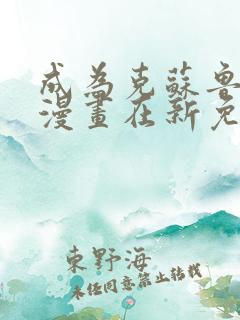 成為克蘇魯
漫畫在新免
東野海
未經同意禁止轉載